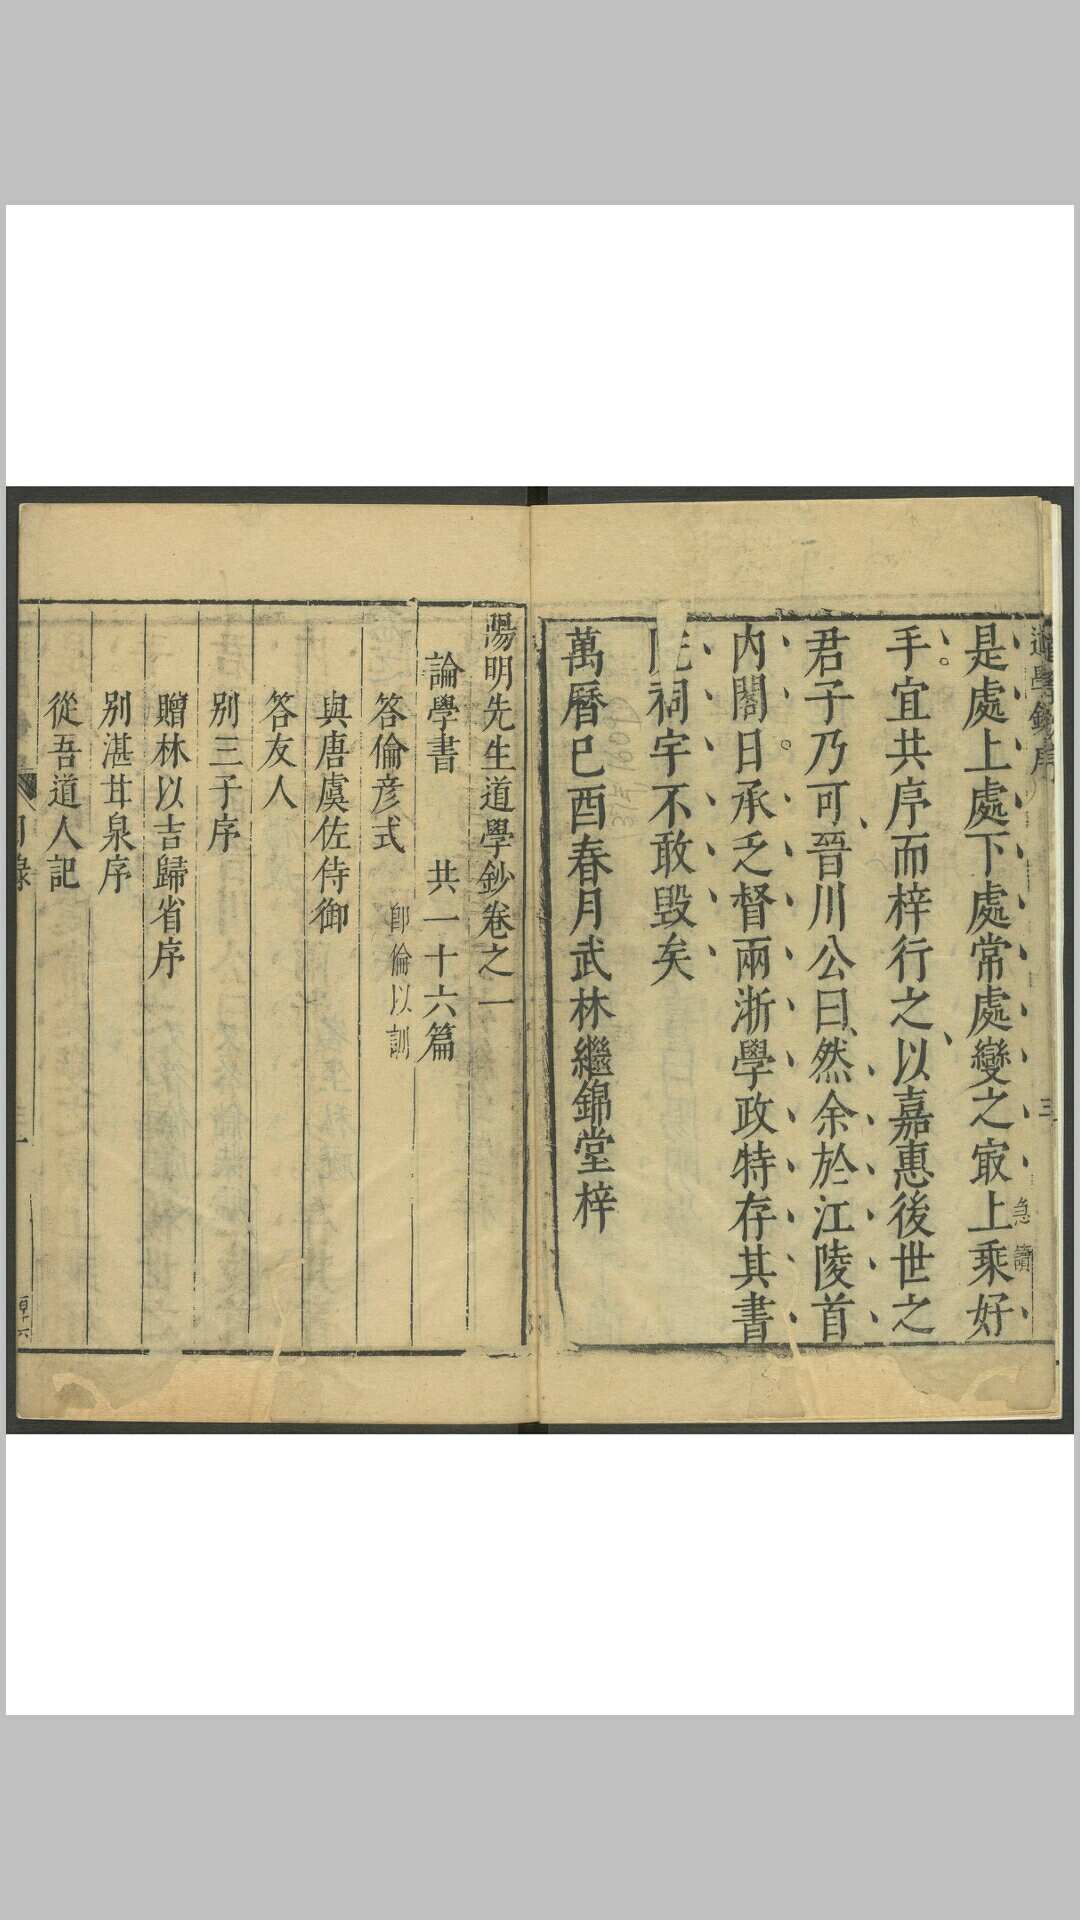 道學鈔序
三
急讀
是處上處下處常處變之㝡上乘好
手宜共序而梓行之以嘉惠後世之
君子乃可晉川公曰然余於江陵首
內閣日承乏督兩浙學政特存其書
院祠宇不敢毀矣
萬曆己酉春月武林繼錦堂梓
陽明先生道學鈔卷之一
論學書 共一十六篇
答倫彦式 即倫以訓
與唐虞佐侍御
答友人
別三子序
贈林以吉歸省序
別湛甘泉序
從吾道人記
目錄